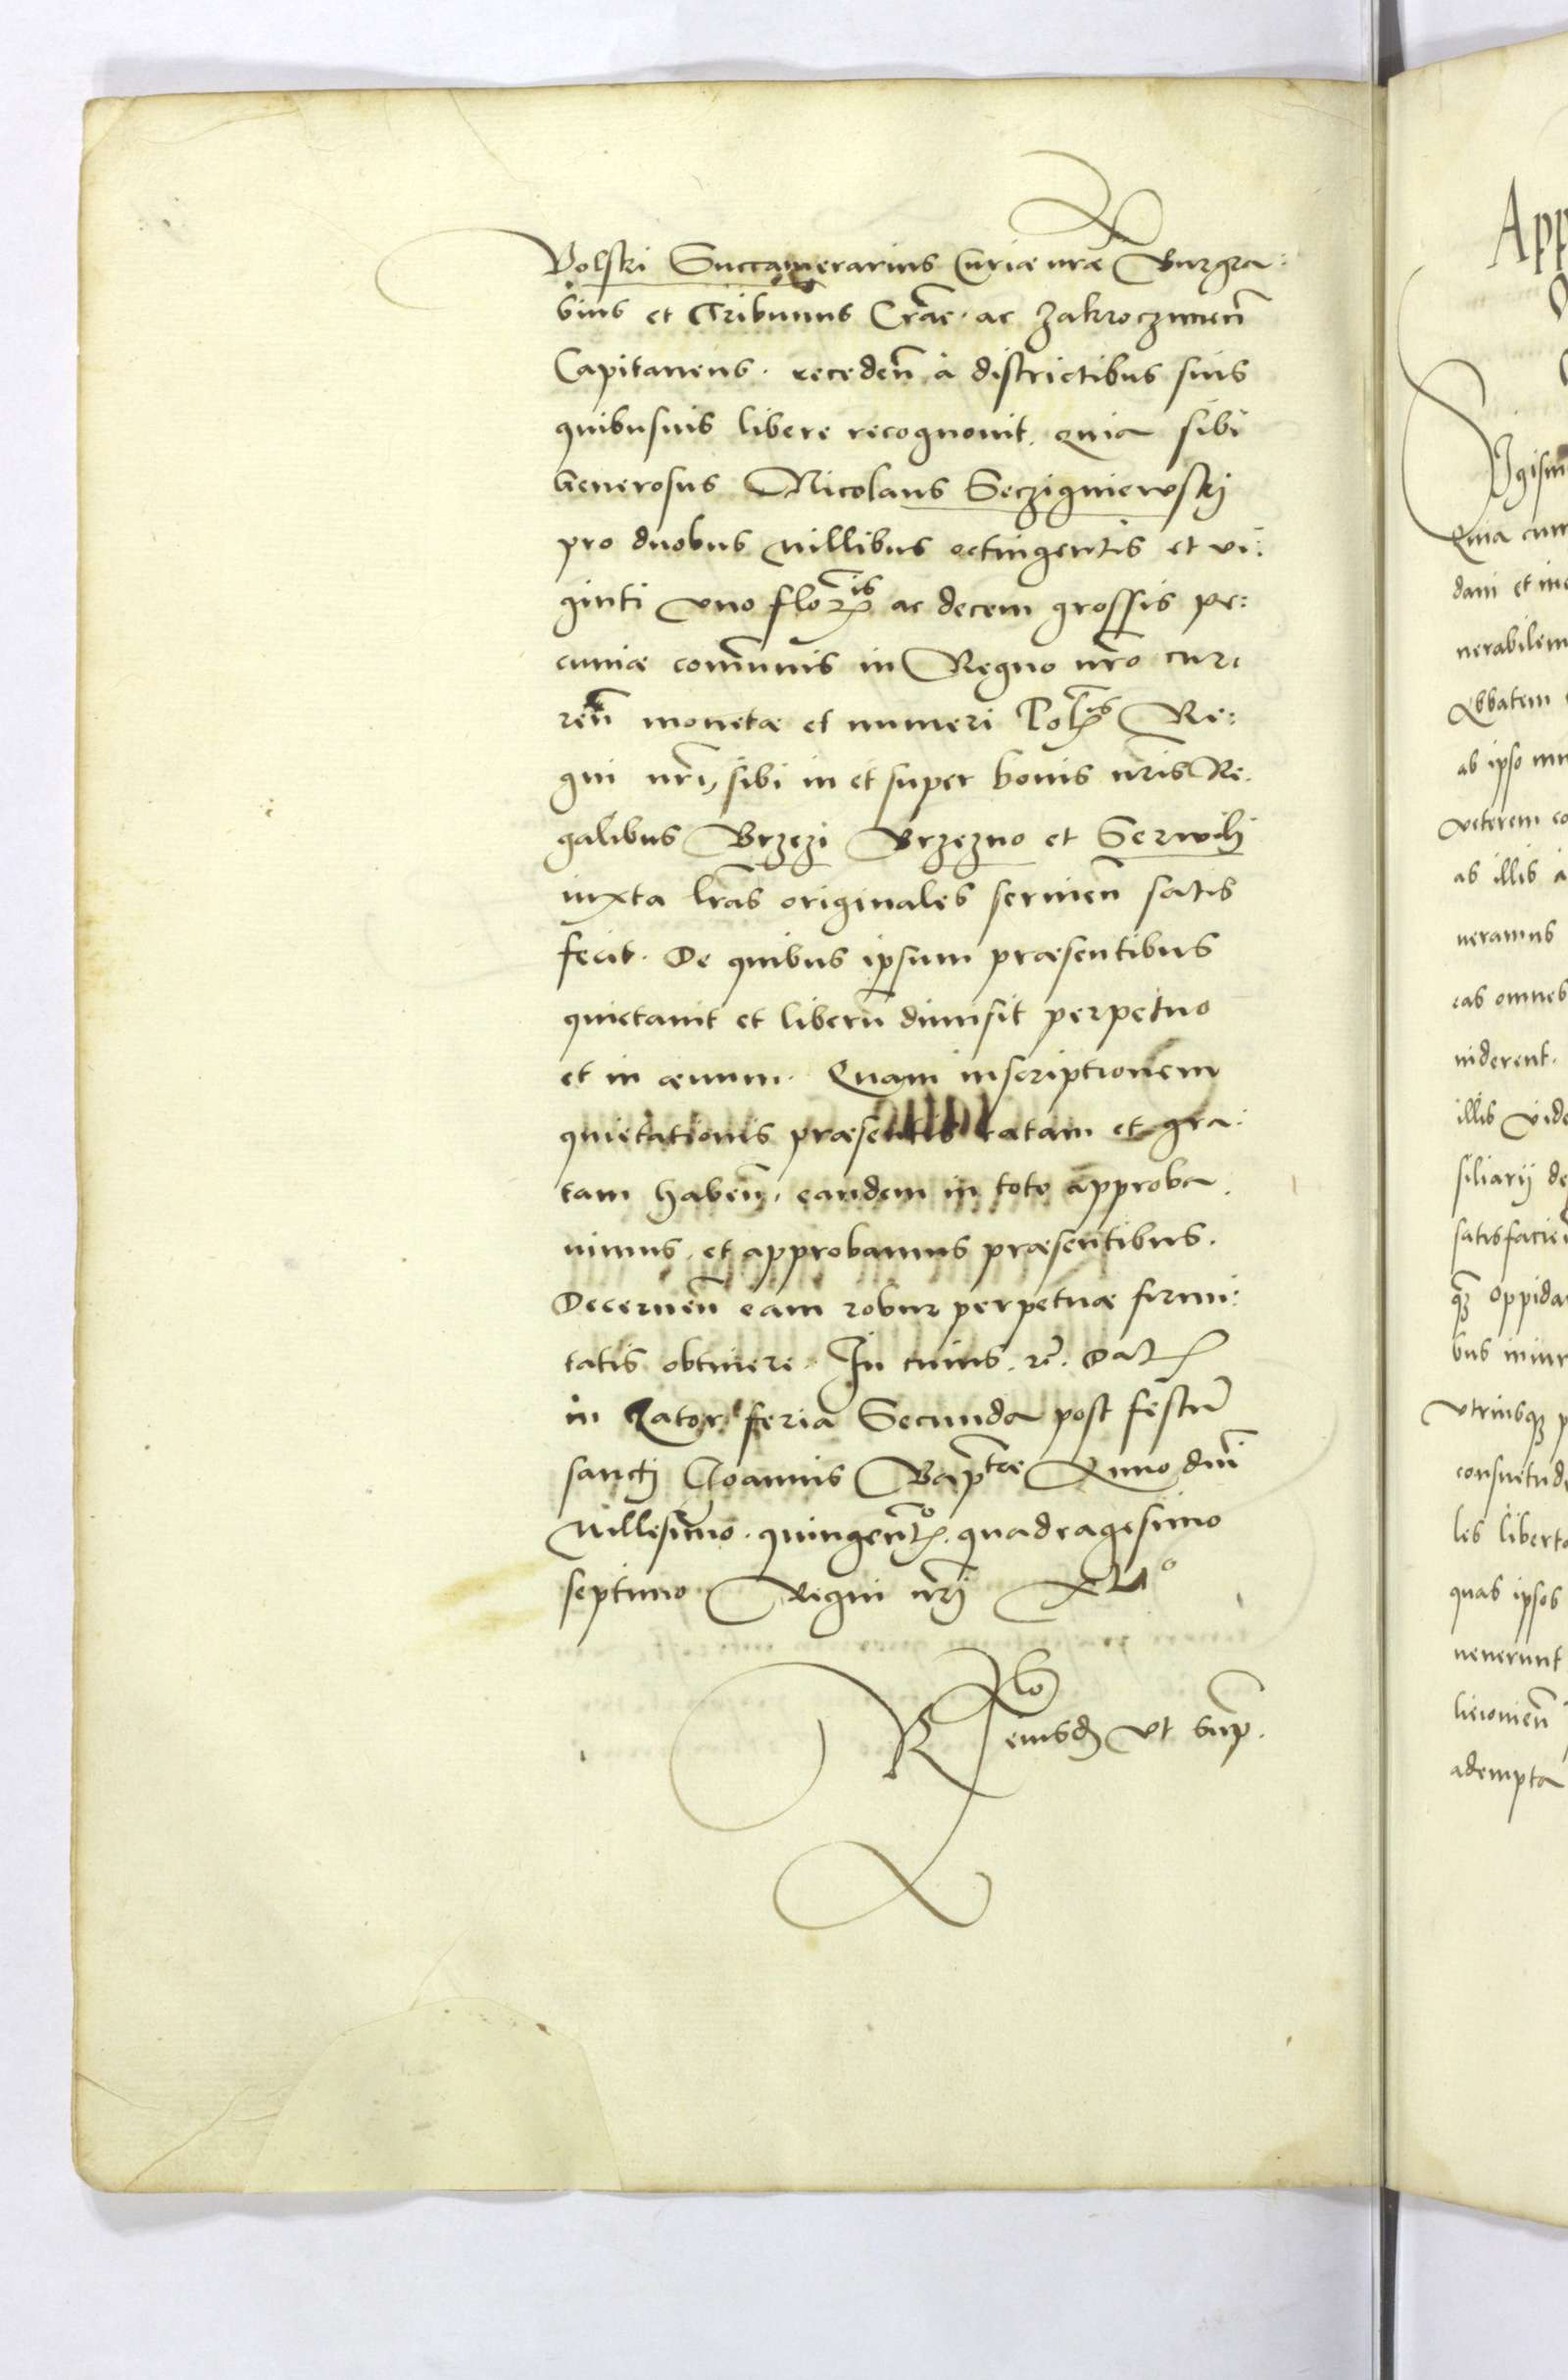 Volski Succamerarius Curiæ nrae Burgra:
bius et Tribunus Crac. ac Zakroczimen
Capitaneus. receden̄ à districtibus suis
quibusuis libere recognouit. quia sibi
Generosus Nicolaus Seczigniewskj
pro duobus millibus octingentis et vi:
ginti vno florenis ac decem grossis pe:
cuniæ com̄unis in Regno nr̄o cur:
ren̄ monetæ et numeri Polcis Re:
gni nr̄i, sibi in et super bonis nr̄is Re:
galibus Brzezi Brzezno et Serwih
iuxta lr̄as originales seruien̄ satis
fecit. De quibus ipsum præsentibus
quietauit et liberū dimisit perpetuo
et in æuum. Quam inscriptionem
quietationis præsentis ratam et gra:
tam haben̄, eandem in toto approba
uimus, et approbamus præsentibus.
Decernen̄ eam robur perpetuæ firmi:
tatis obtinere. In cuius. rē. Dat
in feria Secunda post festū
sanctj Ioannis Baptæ Anno dnī
Millesimo. quingento. quadragesimo
septimo Regni nr̄j
Rlo eiusdē vt supr.
App
Sigism
Quia cum
dam et in
nerabilem
Abbatem
ab ipso
veterem co
ab illis à
ueramus
eas omnes
uiderent.
illis vide
siliarij de
satisfacien
quæ oppida
bus iniur
vtriusque p
consuetud
les liberta
quas ipsos
uenerunt
adempta